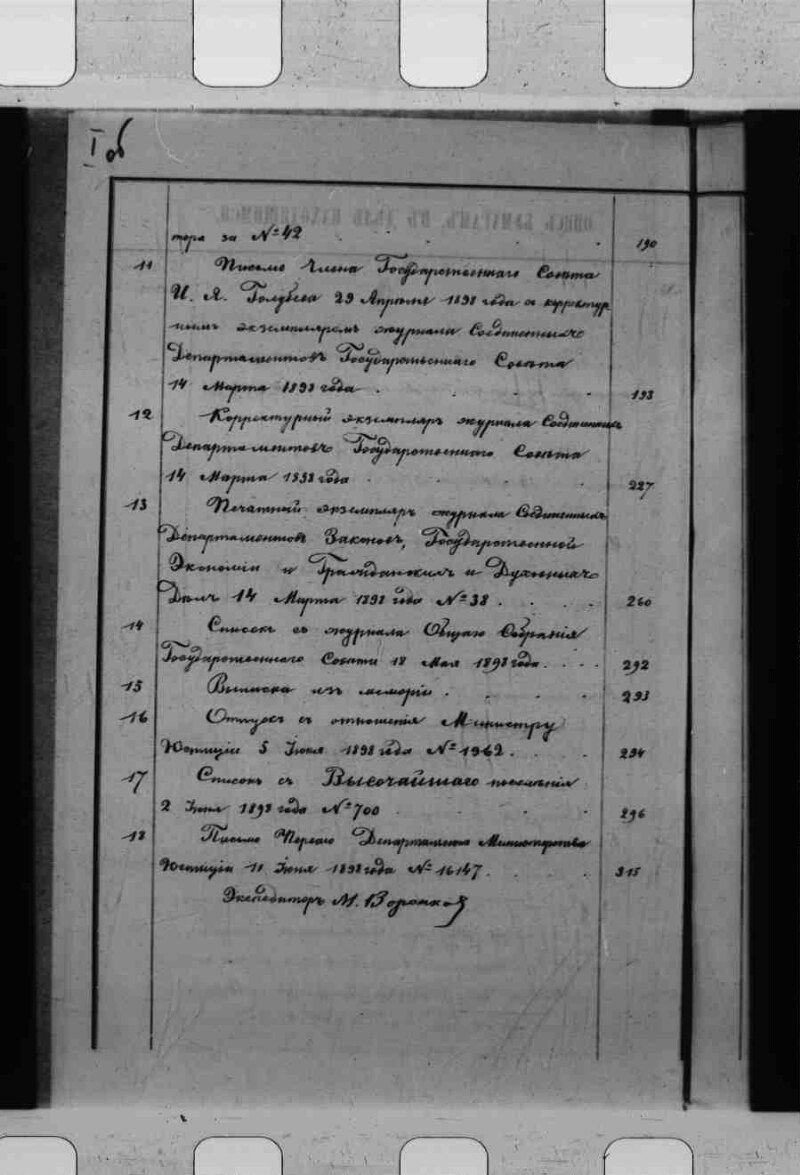 I об
тора за № 42 . . . . 190
11 Письмо Члена Государственнаго Совѣта
И. Я. Голубева 29 Апрѣля 1898 года съ корректур
нымъ экземпляромъ журнала Соединенныхъ
Департаментовъ Государственнаго Совѣта
14 Марта 1898 года . . . . 193
12 Корректурный экземпляръ журнала Соединенныхъ
Департаментовъ Государственнаго Совѣта
14 Марта 1898 года . . . . 227
13 Печатный экземпляръ журнала Соединенныхъ
Департаментовъ Законовъ, Государственной
Экономіи и Гражданскихъ и Духовныхъ
Дѣлъ 14 Марта 1898 года № 38 . . . . 260
14 Списокъ съ журнала Общаго Собранія
Государственнаго Совѣта 18 Мая 1898 года . . . . 292
15 Выписка изъ меморіи . . . . 293
16 Отпускъ съ отношенія Министру
Юстиціи 5 Іюня 1898 года № 1962 . . . . 294
17 Списокъ съ Высочайшаго повелѣнія
2 Іюня 1898 года № 700 . . . . 296
18 Письмо Перваго Департамента Министерства
Юстиціи 11 Іюня 1898 года № 16147 . . . . 315
Экспедиторъ М.